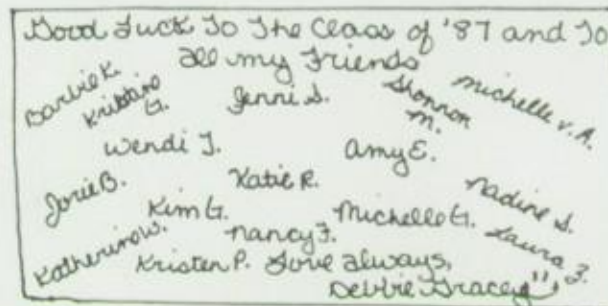 Good Luck To The Class of '87 and To
all my Friends
Barbie K.
Kristine G.
Jenni S.
Shannon M.
Michelle v. A.
Wendi J.
Amy E.
Jorie B.
Katie R.
Nadine S.
Kim G.
Michelle G.
Katherine W.
Nancy F.
Laura Z.
Kristen P.
Love always,
Debbie Gracey